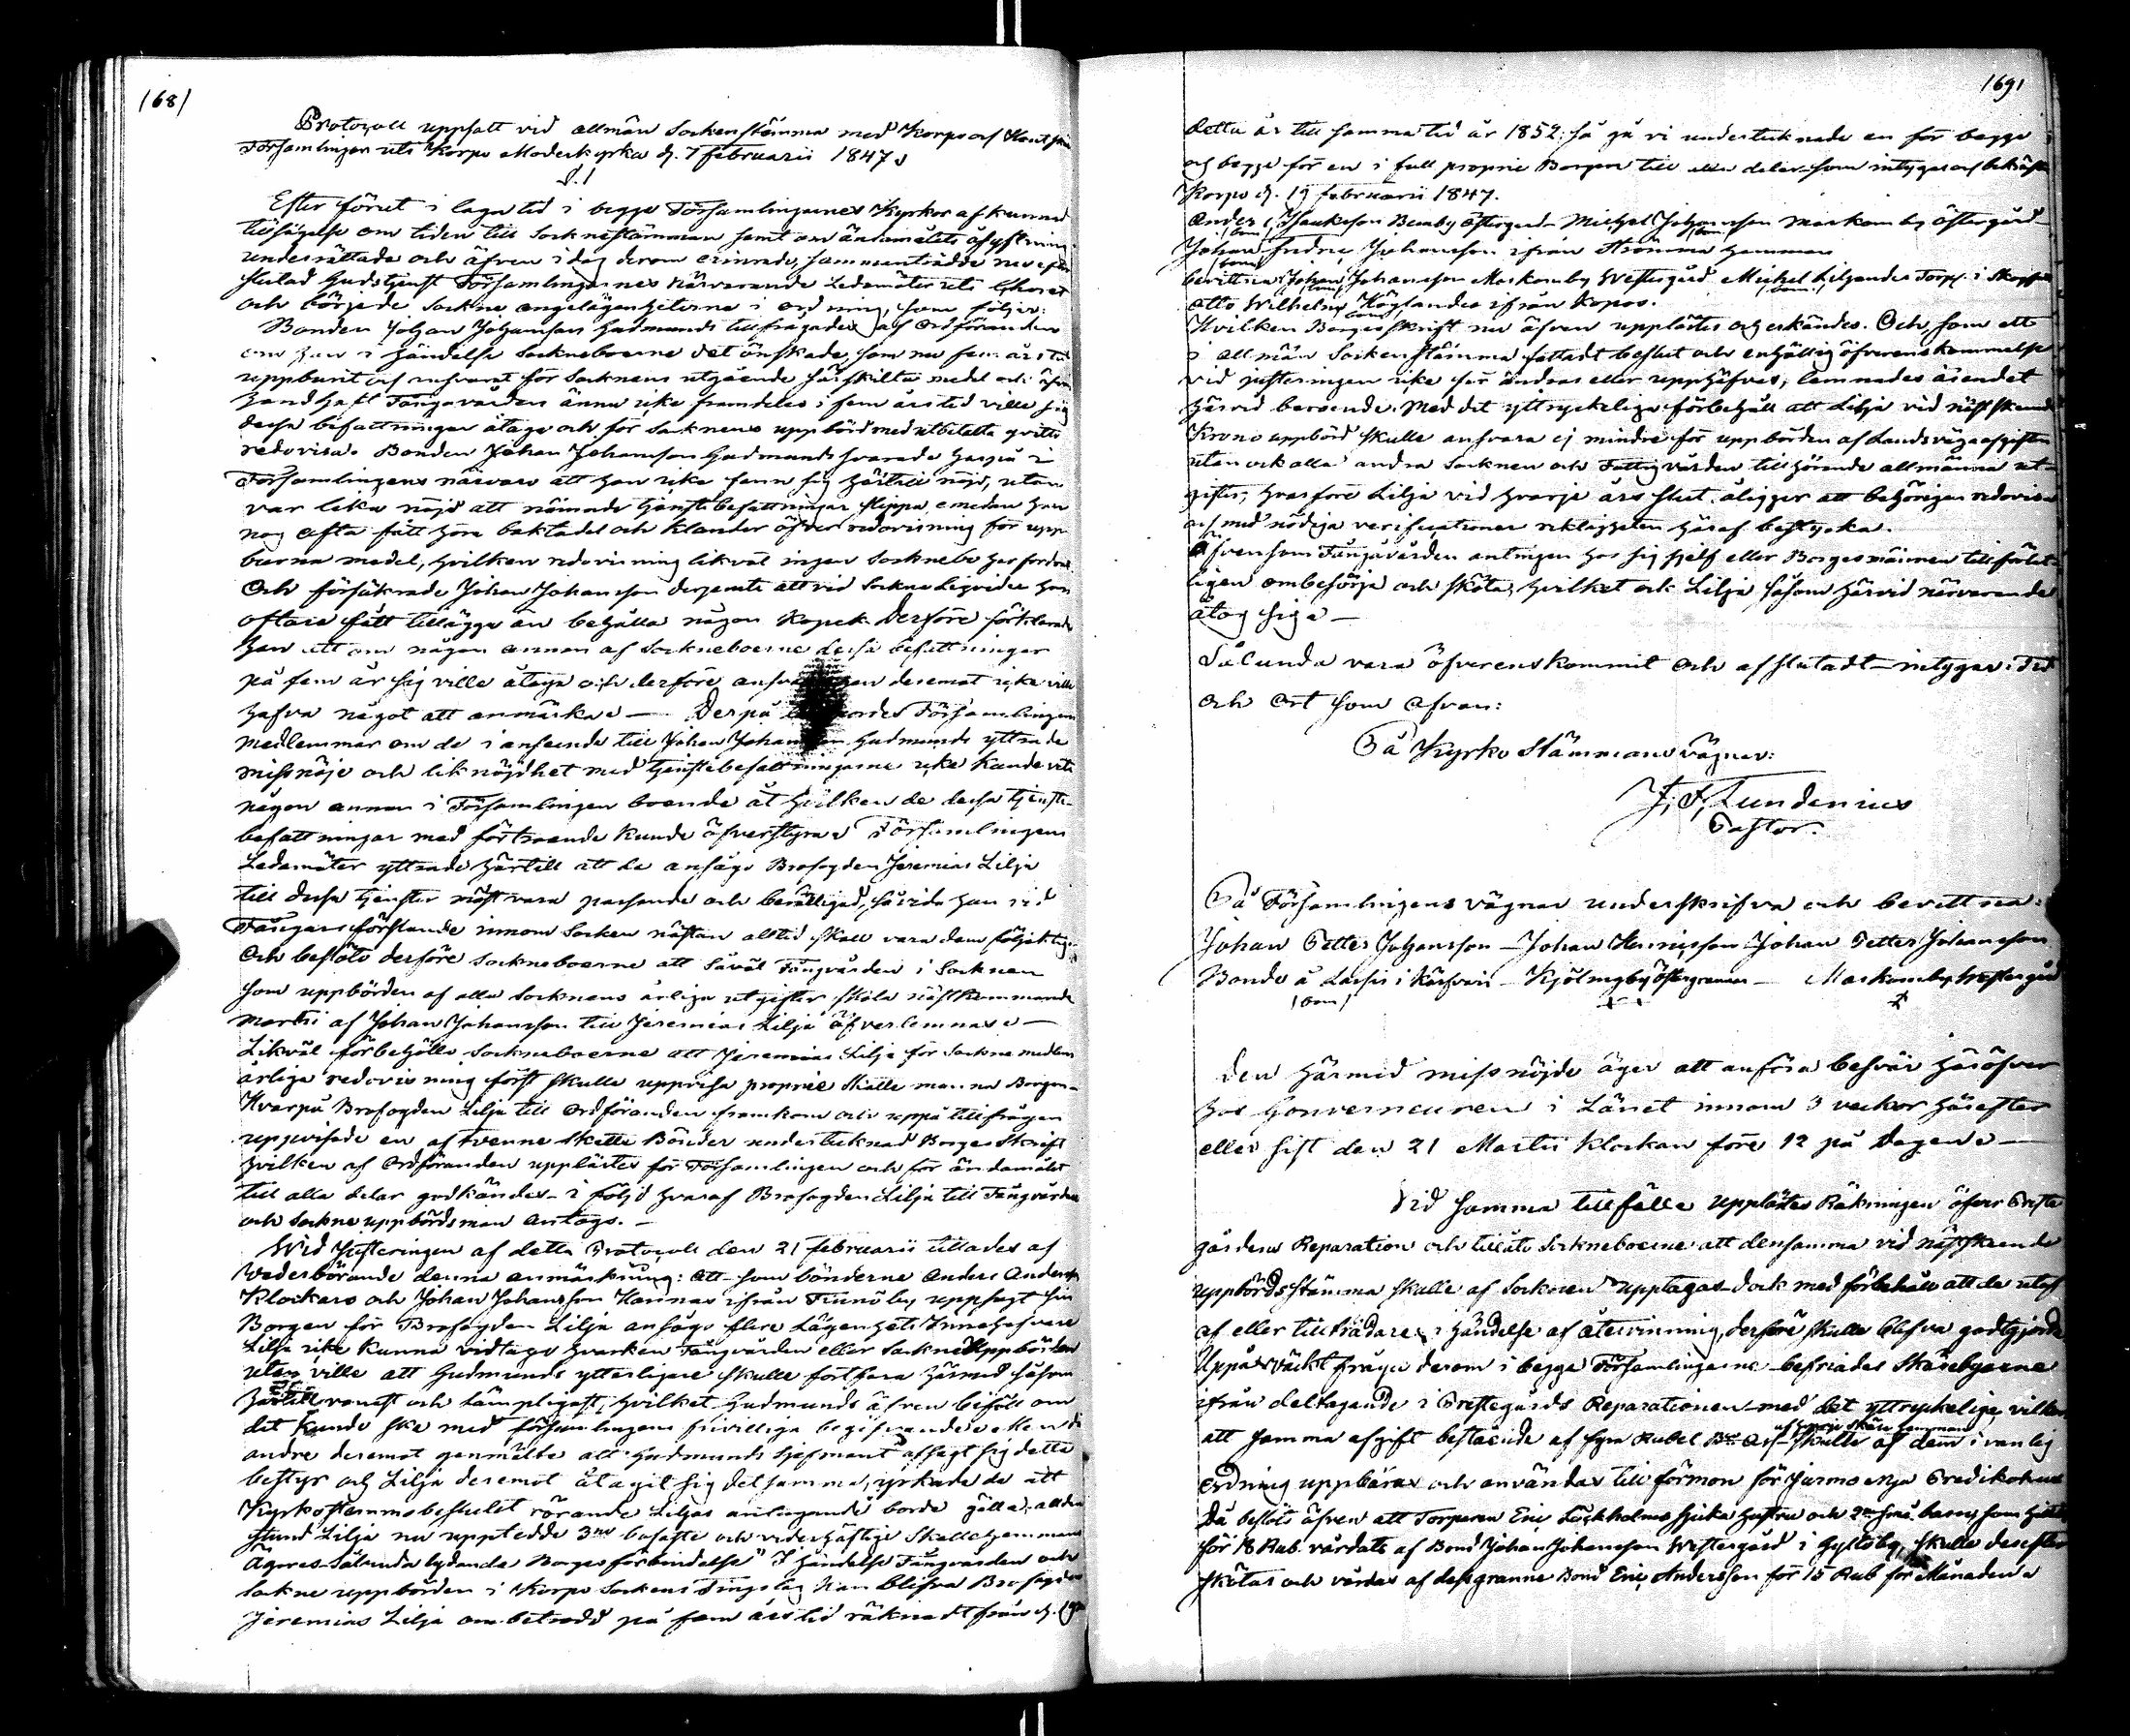 168)
Protocoll uppsatt vid allmän Sockenstämma med Korpo och
Församlingar uti Korpo Moderkyrka d. 7 februarii 1847.
§.1
Efter förut i laga tid i begge Församlingarnes Kyrkor afkunnad
tillsägelse om tiden till Socknestämman samt om ändamålets åsyftning
underrättade och äfven i dag derom erinrade, sammanträdde nu efter
slutad Gudstjenst Församlingarnes närvarande Ledamöter uti Choret
och började Sockne angelägenheterne i ordning, som följer:
Bonden Johan Johansson Gudmunds tillfrågades af Ordföranden
om han i händelse Sockneboerne det önskade, som nu fem års tid
uppburit och ansvarat för Socknens utgående särskilta medel och äfven
handhaft Fångvården ännu icke framdeles i fem års tid ville sig
dessa befattningar åtaga och för Socknens uppbörd med utbetalta qvitto
redovisa. Bonden Johan Johansson Gudmunds svarade härpå i
Församlingens närvaro att han icke fann sig härtill nöjd, utan
var lika nöjd att nämnde tjenstebefattningar slippa, emedan han
nog ofta fått höra baktadel och klander öfver redovisning för upp
burna medel, hvilken redovisning likväl ingen Socknebo har fordrat
Och försäkrade Johan Johansson derjemte att vid Sockne Liqvider han
oftare fått tillägga än behålla någon Kopek. Derföre förklarade
han att om någon annan af Sockneboerne dessa befattningar
på fem år sig ville åtaga och derföre ansvara han deremot icke ville
hafva något att anmärka. — Derpå Församlingens
medlemmar om de i anseende till Johan Johansson Gudmunds yttrade
missnöje och liknöjdhet med tjenstebefattningarne icke kunde veta
någon annan i Församlingen boende åt hvilken de dessa tjenste-
befattningar med förtroende kunde öfverstyra. Församlingens
Ledamöter yttrade härtill att de ansågo Brofogden Jeremias Lilja
till dessa tjenster mäst vara passande och berättigad, såvida han vid
Fångars förslande innom Socken nästan alltid skall vara dem följaktig.
Och beslöts derföre Sockneboerne att såväl Fångvården i Socknen
som uppbörden af alla Socknens årliga utgifter skola nästkommande
Martii af Johan Johansson till Jeremias Lilja öfverlemnas. —
Likväl förbehöllo Sockneboerne att Jeremias Lilja för Sockne medlens
årliga redovisning först skulle uppvisa proprie Skatte manna Borgen.
Hvarpå Brofogden Lilja till Ordföranden framkom och uppå tillfrågan
uppvisade en af tvenne Skatte Bönder undertecknad Borges Skrift
hvilken af Ordföranden upplästes för Församlingen och för ändamålet
till alla delar godkändes — i följd hvaraf Brofogden Lilja till Fångvården
och Sockne uppbördsman antogs. —
Wid Justeringen af detta Protocoll den 21 februarii tillades af
Wederbörande denna anmärkning: Att som bönderne Anders Anders
Klockars och Johan Johansson Hannas ifrån Finnö by uppsagt sin
Borgen för Brofogden Lilja ansågo flere Lägenhets Innehafvare
Lilja icke kunna vidtaga hvarken Fångvården eller Sockne Uppbörden
utan ville att Gudmunds ytterligare skulle fortfara härmed såsom
härtill vanast och lämpligast, hvilket Gudmunds äfven biföll om
det kunde ske med församlingens frivilliga begifvande. Men de
andre deremot genmälte att Gudmunds sjelfmant afsagt sig detta
bestyr och Lilja deremot åtagit sig detsamma, yrkade de att
Kyrkostemmobeslutet rörande Liljas antagande borde gälla, allden
stund Lilja nu uppteddde 3ne besatte och vederhäftige Skattehemmans
Ägares Sålunda lydande Borgesförbindelse "I händelse Fångvården och
Sockne uppbörden i Korpo Sockens Tingslag kan blifva Brofogden
Jeremias Lilja ombetrodd på fem års tid räknadt från d.
169)
detta år till samma tid år 1852: så gå vi undertecknade en för begge
och begge för en i full proprie Borgen till alla delar som intygas och bekräftas
Korpo d. 19 februarii 1847.
Anders Isaksson Benby Östergård — Michel Johansson Maskamby östergård —
Johan Fredric Johansson ifrån Strömma hemman
bevittna Johan Johansson Maskamby Westergård Michel Liljander Torp. i
Otto Wilhelm Höglander ifrån Kopos.
Hvilken Borgesskrift nu äfven upplästes och erkändes. Och som ett
i allmän Sockenstämma fattadt beslut och enhällig öfverenskommelse
vid justeringen icke får ändras eller upphäfves, lemnades ärendet
härvid beroende. Med det yttryckeliga förbehåll att Lilja vid näst skeende
Krono uppbörd skulle ansvara ej mindre för uppbörden af Landsvägsafgiften
utan ock alla andra Socknen och Fattigvården tillhörande allmänna ut-
gifter, hvarföre Lilja vid hvarje års slut åligger att behörigen redovisa
och med nödiga verificationer riktigheten häraf bestyrka.
Äfvensom Fångavården antingen hos sig sjelf eller Borgesmännen tillförlit-
ligen ombesörja och sköta, hvilket ock Lilja såsom härvid närvarande
åtog sig. —
Sålunda vara öfverenskommit och afslutadt — intygar. Tid
och Ort som ofvan:
På Kyrko Stämmans vägnar:
J. F. Lundenius
Pastor.
På Församlingens vägnar underskrifva och bevittna:
Johan Petter Johansson — Johan Henricsson Johan Petter Johansson
Bonde å Lassis i Kärfvari — Kjölingby — Maskamby Westergård
(bom)
Den härmed missnöjde äger att anföra besvär häröfver
hos Gouverneuren i Länet innom 3 veckor härefter
eller sist den 21 Martii klockan före 12 på dagen. —
Vid samma tillfälle upplästes Räkningen öfver Preste
gårdens Reparation och tilläts Sockneboerne att densamma vid nästskeende
uppbördsstämma skulle af Socknen upptagas dock med förbehåll att de utaf
af eller tillträdare i händelse af återvinning, derföre skulle blifva godtgjorde
Uppå väckt fråga derom i begge Församlingarne befriades Skärebyarne
ifrån deltagande i Prestegårds Reparationen med det yttryckeliga vilkor
att samma afgift bestående af fyra Rubel Bco Ass — skulle af dem i vanlig
af hvarje Skäre hemman
ordning uppbäras och användas till förmon för Jurmo nya Predikohus
Då beslöts äfven att Torparen Eric Löckholms sjuka hustru och 2ne små barn, som hittills
för 18 Rub. vårdats af Bond Johan Johansson Westergård i Gyltöby, skulle derefter
skötas och vårdas af dess granne Bond Eric Andersson för 15 Rub för Månaden.